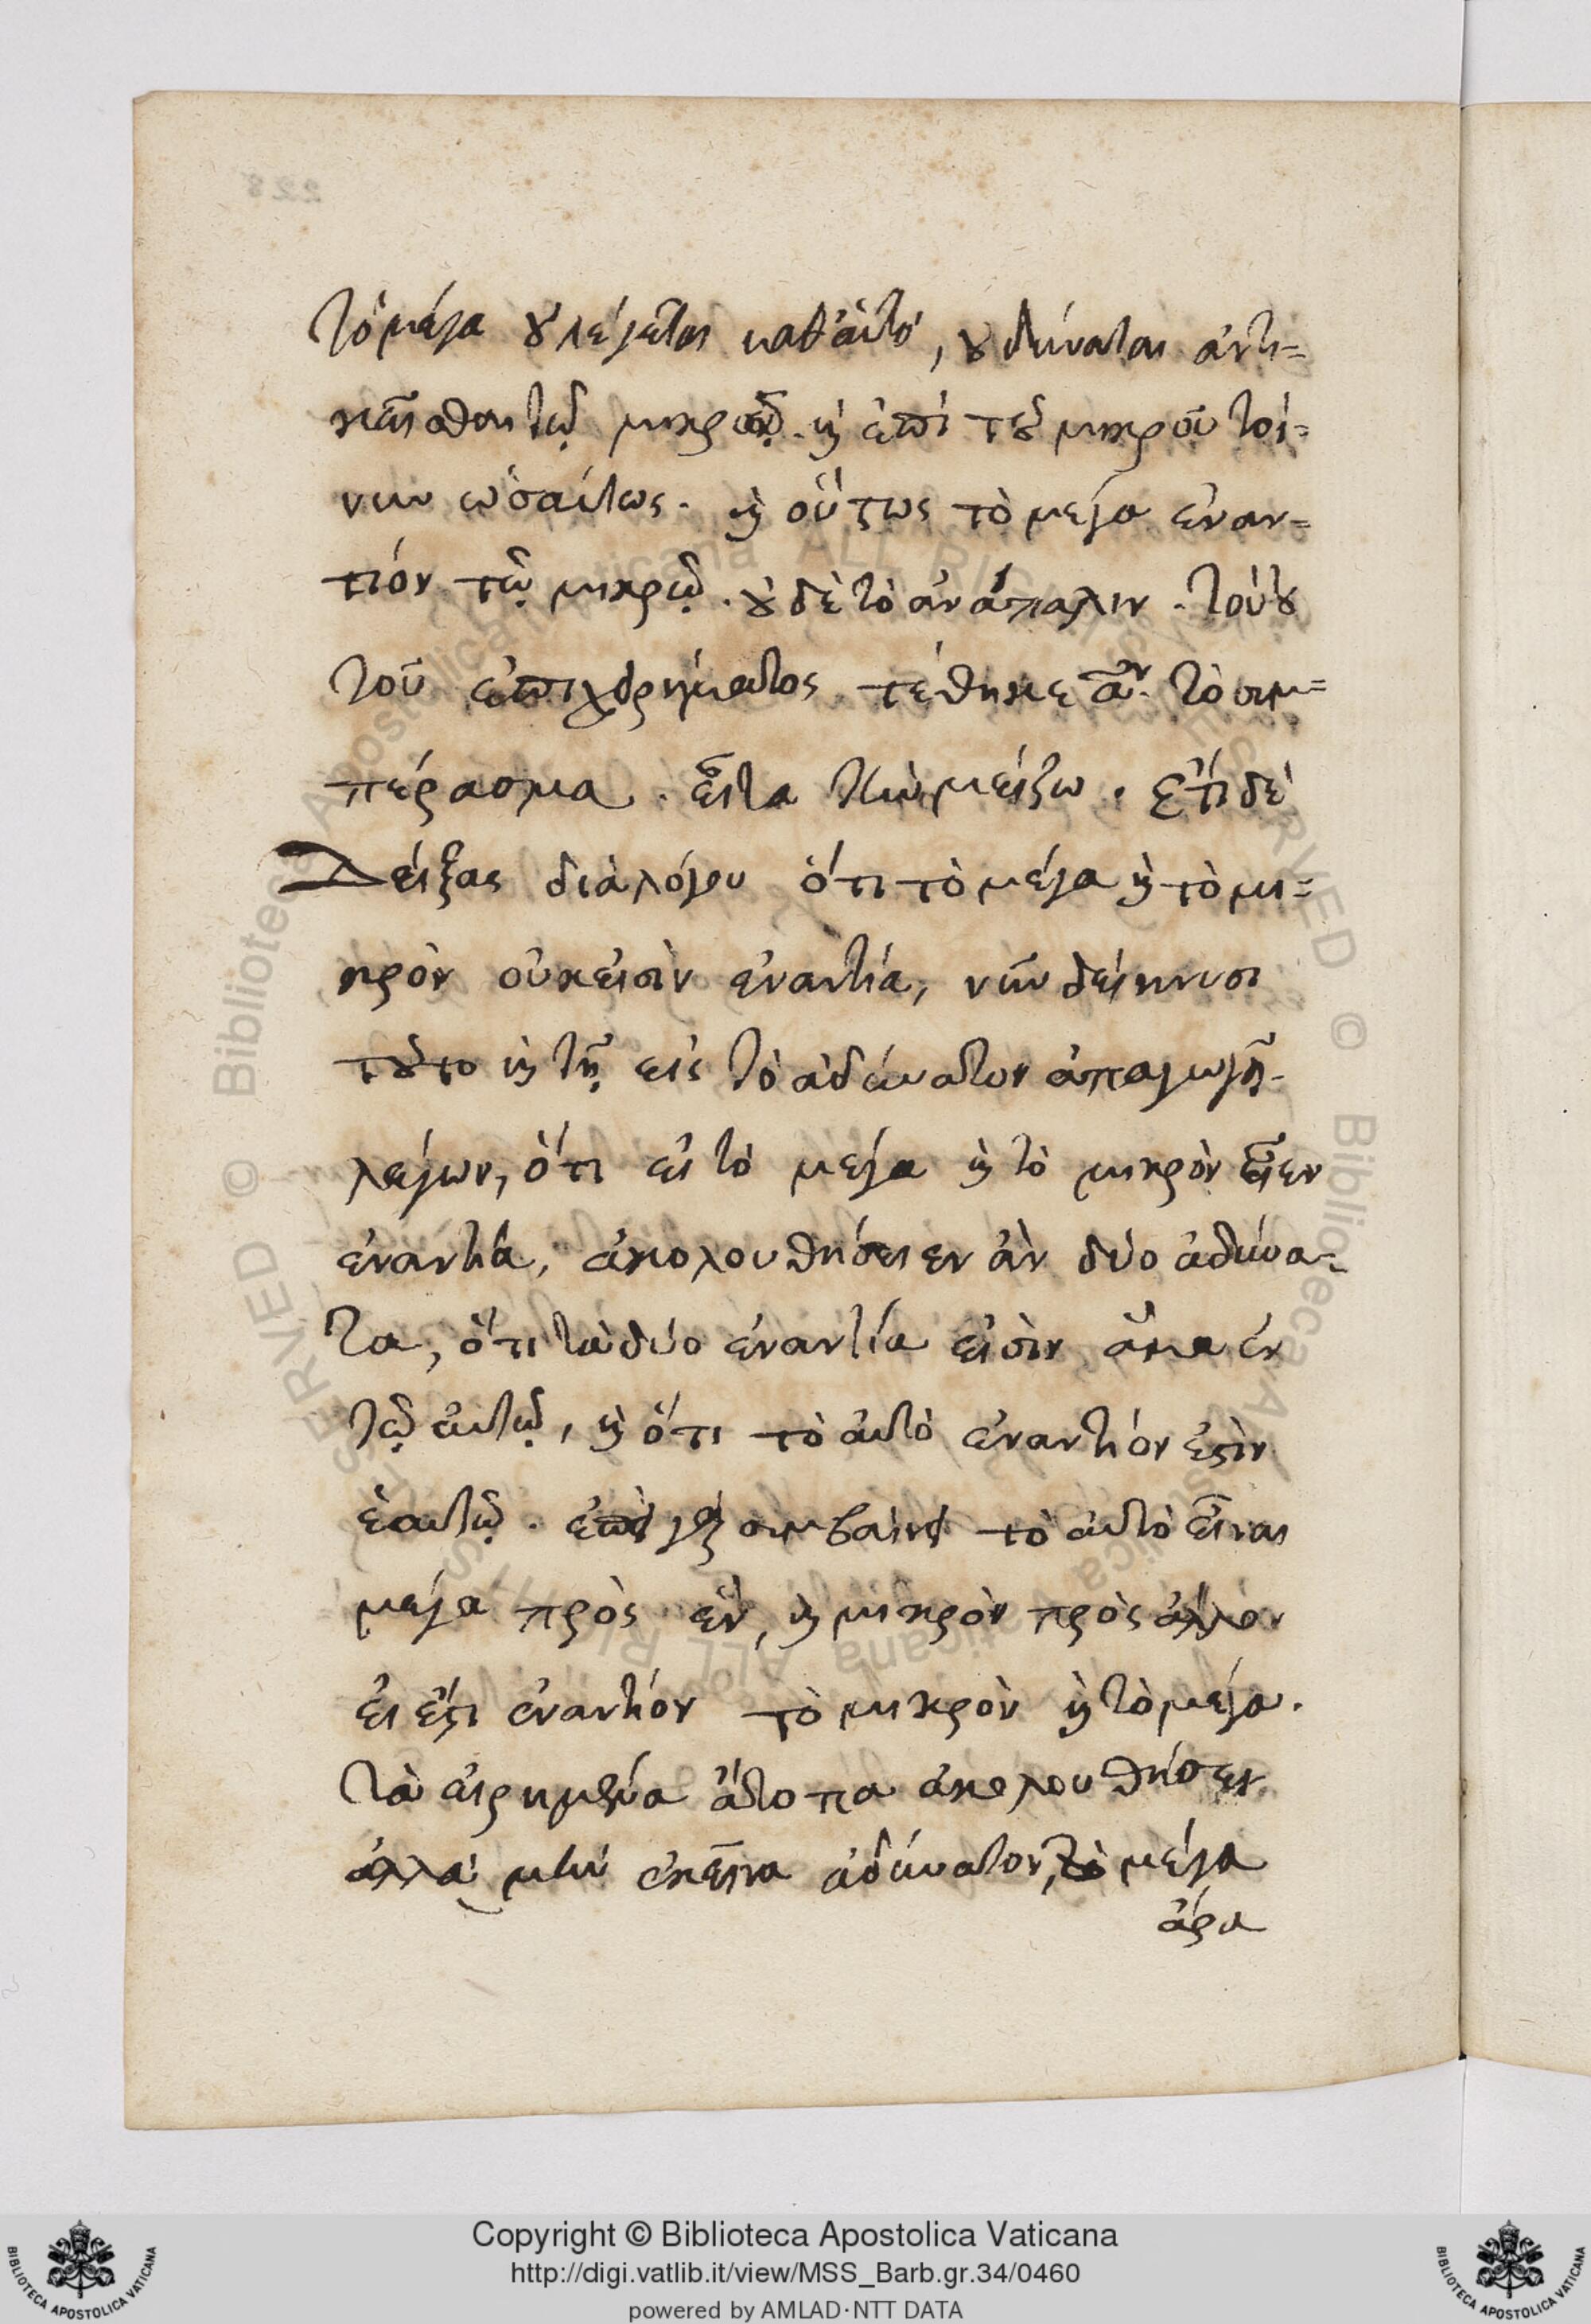 τὸ μέγα ȣ̓ λέγεται καθ' αὑτὸ, ȣ̓ δύναται ἀντι=
κεῖσθαι τῷ μικρῷ. ϗ̀ ἐπὶ τȣ͂ μικροῦ τοί=
νυν ὡσαύτως. ϗ̀ οὕτως τὸ μέγα ἐναν=
τιόν τῷ μικρῷ. ȣ̓δὲ τὸ ἀνάπαλιν. τούτȣ
τοῦ ἐπιχȣρήματος τέθηκε ἂν τὸ συμ=
πέρασμα. εἶτα τὴν μείζω. ἔτι δὲ
Δείξας διὰ λόγου ὅτι τὸ μέγα ϗ̀ τὸ μι=
κρὸν οὐκ εἰσὶν ἐναντία, νῦν δείκνυσι
τȣ͂το ϗ̀ τῇ εἰς τὸ ἀδύνατον ἀπαγωγῇ.
λέγων, ὅτι εἰ τὸ μέγα ϗ̀ τὸ μικρὸν εἶεν
ἐναντία, ἀκολουθήσειεν ἂν δύο ἀδύνα=
τα, ὅτι τὰ δύο ἐναντία εἰσὶν ἅμα ἐν
τῷ αὐτῷ, ϗ̀ ὅτι τὸ αὐτὸ ἐναντίον ἐϛὶν
ἑαυτῷ. ἐπεὶ γὰρ συμβαίνει τὸ αὐτὸ εἶναι
μέγα πρὸς ἓν, ϗ̀ μικρὸν πρὸς ἄλλον
εἰ ἔϛι ἐναντίον τὸ μικρὸν ϗ̀ τὸ μέγα.
τὰ εἰρημένα ἄτοπα ἀκολουθήσει.
ἀλλὰ μὴν ἐκεῖνα ἀδύνατον, τὸ μέγα
ἄρα
Copyright © Biblioteca Apostolica Vaticana
http://digi.vatlib.it/view/MSS_Barb.gr.34/0460
powered by AMLAD·NTT DATA